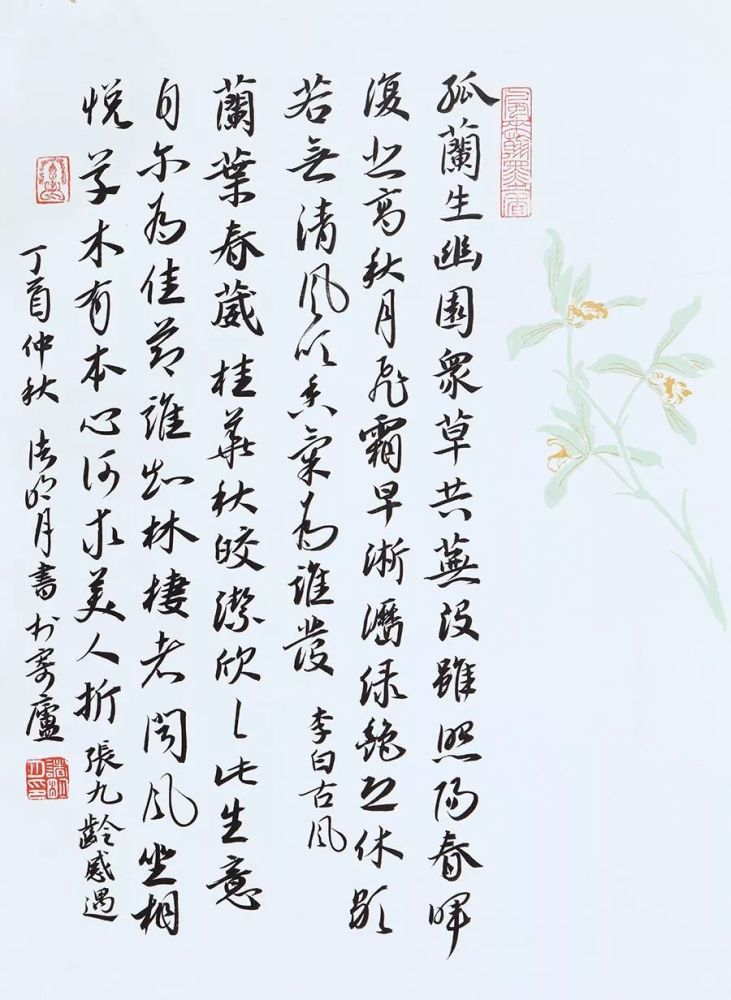 孤蘭生幽園衆草共蕪没雖照陽春暉
復悲高秋月飛霜早淅瀝緑艷恐休歇
若無清風吹香氣為誰發 李白古風
蘭葉春葳桂華秋皎潔欣〻此生意
自尔為佳節誰知林棲者聞風坐相
悦草木有本心何求美人折 張九齡感遇
丁酉仲秋 诸明月書於寄廬